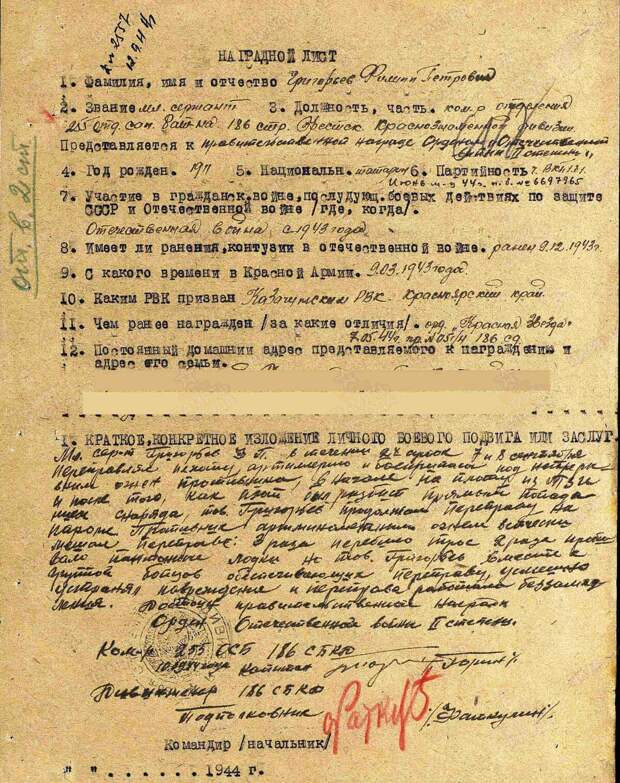 кп 2557
12.9.44г
НАГРАДНОЙ ЛИСТ
1. Фамилия, имя и отчество Григорьев Филипп Петрович
2. Звание мл. сержант 3. Должность, часть. ком-р отделения
255 отд. сап. бат-на 186 стр. Брестск. Краснознаменной дивизии
Представляется к правительственной награде Орденом "Отечественной
войны II степень"
4. Год рожден. 1911 5. Национальн. татарин 6. Партийность ВКП/б/.
Июнь м-ц 44г. п.б. № 6697965
7. Участие в гражданск. войне, послудующ. боевых действиях по защите
СССР и Отечественной войне /где, когда/.
Отечественная война с 1943 года.
8. Имеет ли ранения, контузии в отечественной войне. ранен 9.12.1943г.
9. С какого времени в Красной Армии. 9.03.1943 года.
10. Каким РВК призван Казачинским РВК - Красноярский край
11. Чем ранее награжден /за какие отличия/. орд. "Красная Звезда"
7.05.44г. пр. № 051/н 186 сд
12. Постоянный домашнии адрес представляемого к награждению и
адрес его семьи.
1. КРАТКОЕ, КОНКРЕТНОЕ ИЗЛОЖЕНИЕ ЛИЧНОГО БОЕВОГО ПОДВИГА ИЛИ ЗАСЛУГ.
Мл. серж Григорьев Ф.П. в течении 24 суток 7 и 8 сентября
переправлял пехоту, артиллерию и боеприпасы под непрерыв-
ным огнем противника, в начале на плоту из ТЗИ
и после того, как плот был разбит прямым попада-
нием снаряда, тов. Григорьев продолжал переправу на
пароме. Противник артминометным огнем всячески
мешал переправе: 3 раза перебило трос 2 раза проби-
вало понтонные лодки но тов. Григорьев вместе с
группой бойцов обеспечивающих переправу, успешно
устранял повреждение и переправа работала беззамед
ления. Достоин правительственной награды
Орден Отечественной войны II степень.
Ком-р 255 ОСБ 186 СБКД
капитан /Горин/
Дивинженер 186 СБКД
Подполковник /Файкулин/
Командир /начальник/
" " . . . . . . . 1944 г.
Отв. в. 2 ст